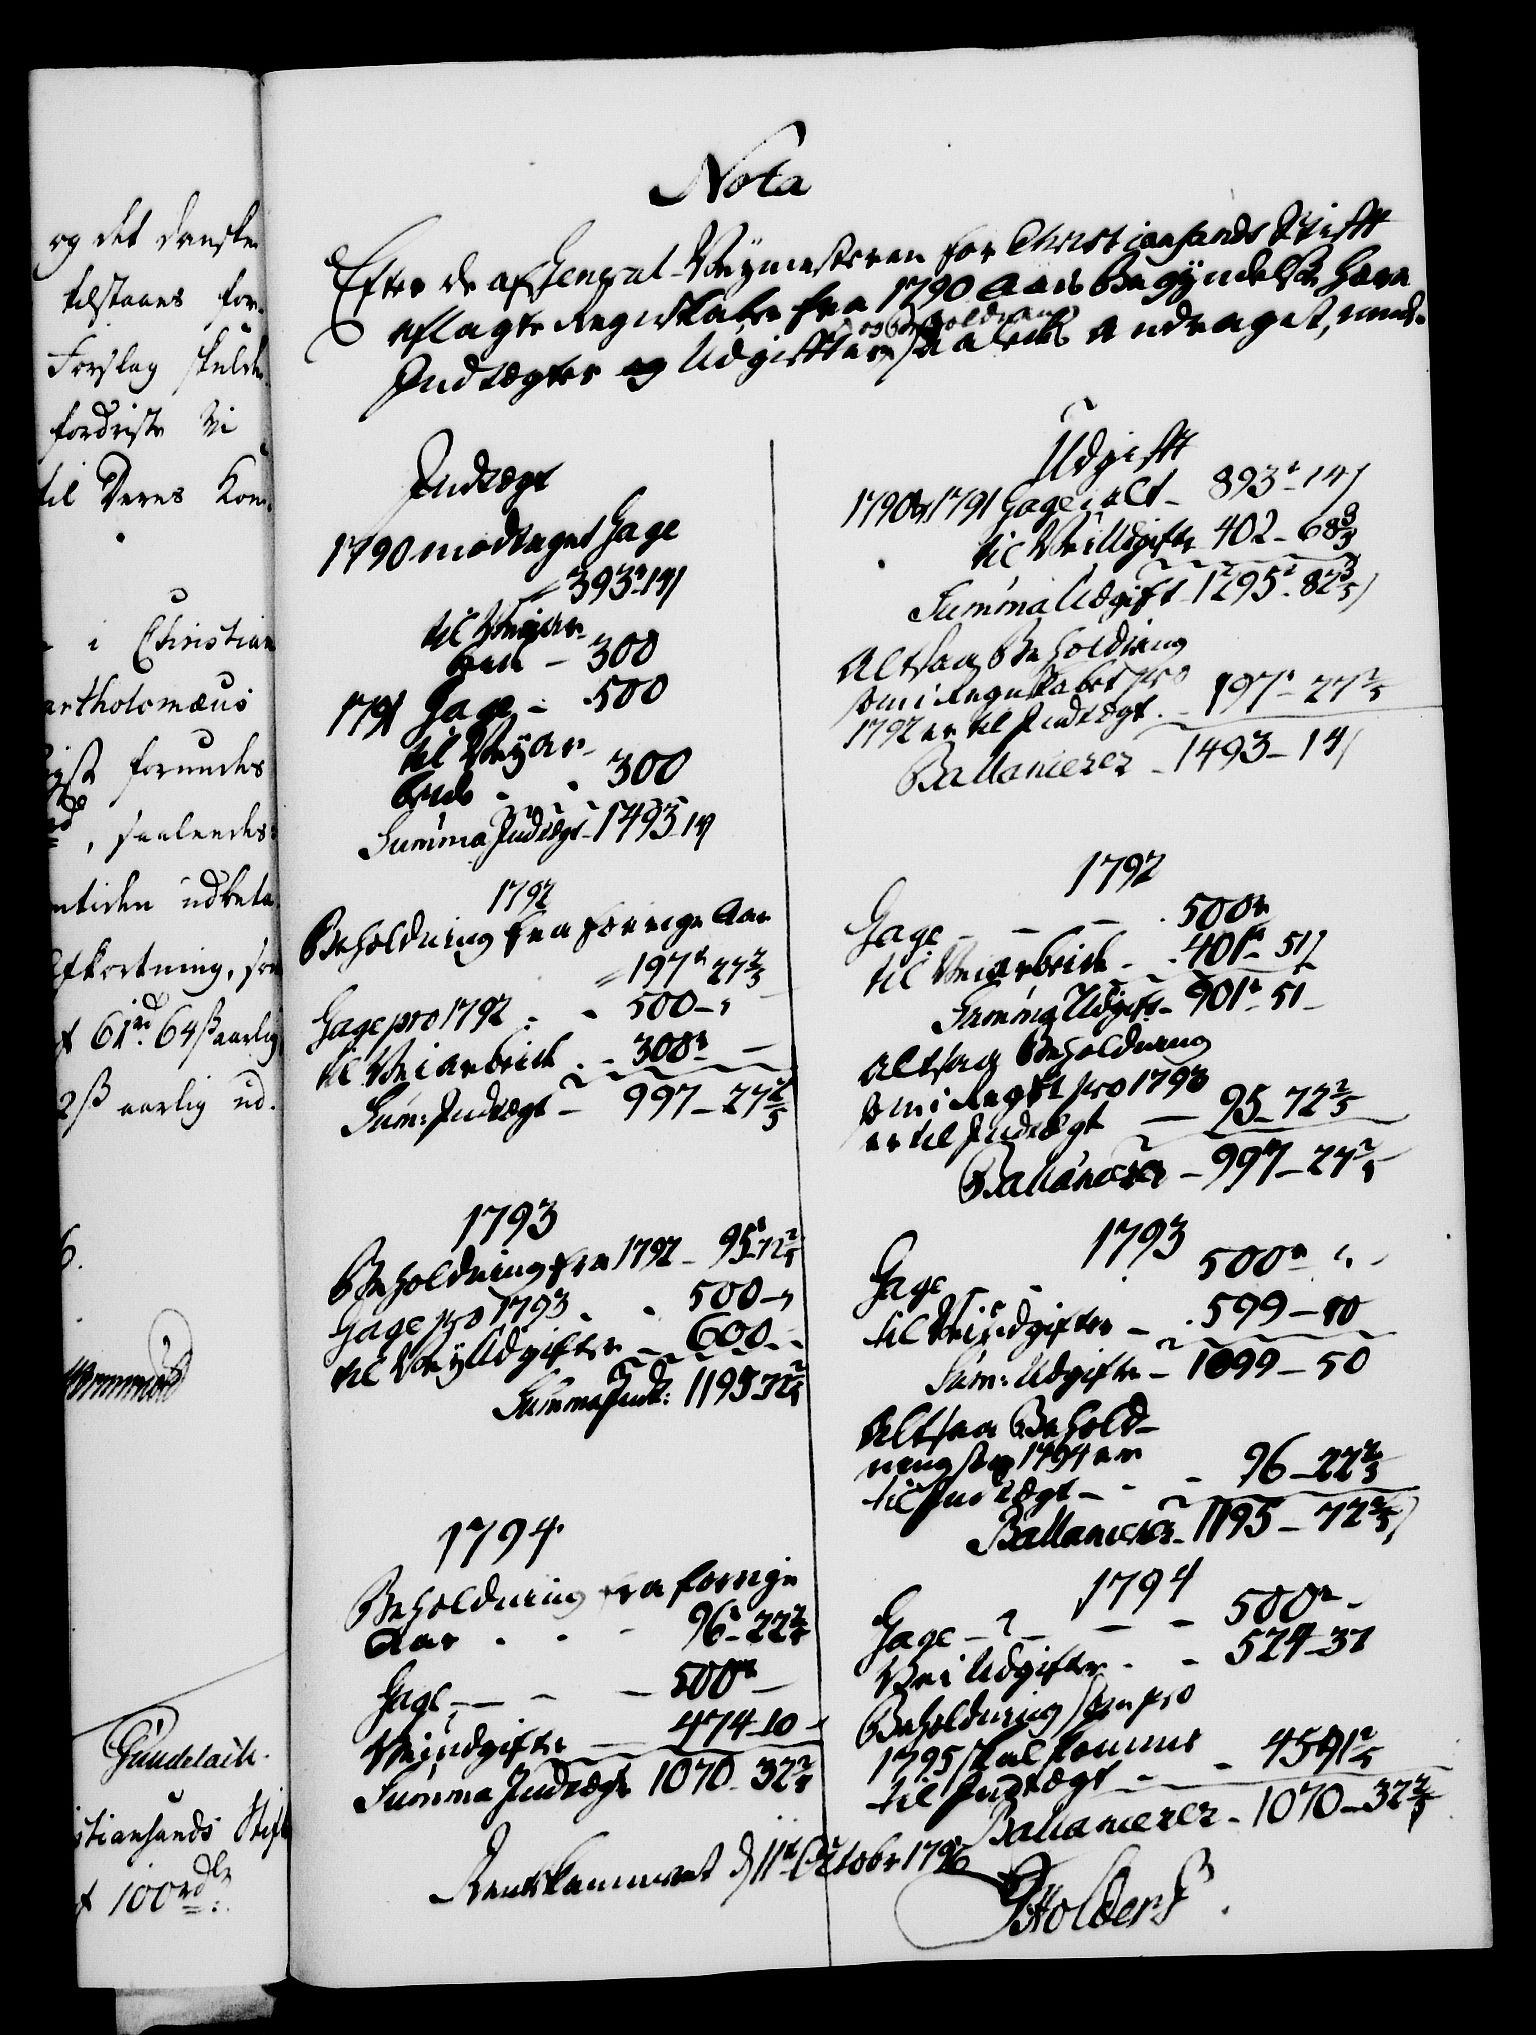 og det danske
tilstaaes for-
Forslag skulde
fordriste Vi
til Deres Kon-
i Christian
artholomæus
forundes
, saaledes
mtiden udbeta
Afkortning, som
af 61 rd 64 ß aarlig
2 ß aarlig ud-
Gundelach.
istiansands Stift
af 100 rdlr
Nota
Efter de af General-Veymesteren for Christiansands Stift
aflagte Regnskaber fra 1790 Aars Begyndelse have
og Beholdning
Indtægter og Udgifter saaledes andraget, nemlig
Indtægt
1790 modtaget Gage
393 r 14 ß
til Veyar-
beid - 300
1791 Gage - 500
til Veyar-
beide - - 300
Summa Indtægt - 1493 - 14 ß
1792
Beholdning fra forrige Aar
197 r 27 2/5
Gage pro 1792 - - 500 - "
til Veiarbeide - - 300 r -
Sum: Indtægt - 997 - 27 2/5
1793
Beholdning fra 1792 - 95 r 72 2/5
Gage pro 1793 - - 500 - "
til VeyUdgifter - 600 - -
Summa Indt: 1195 72 2/5
1794
Beholdning fra forrige
Aar - - - 96 r - 22 2/5
Gage - - - - 500 r -
Veiudgifter - 474 - 10 -
Summa Indtægt 1070 - 32 2/5
Udgifft
1790 og 1791 Gage i alt - 893 r - 14 ß
til VeiUdgifter 402 - 68 3/5
Summa Udgift 1295 r - 82 3/5 ß
Altsaa Beholdning
som i Regnskabet pro
1792 er til Indtægt - 197 r - 27 2/5
Ballancerer - 1493 - 14 ß
1792
Gage - - - 500 r
til Veiarbeide - - 401 r - 51 ß
Summa Udgift - 901 r - 51 -
Altsaa Beholdning
som i Regnsk pro 1793
er til Indtægt - 95 - 72 2/5
Ballancerer - 997 - 27 2/5
1793
Gage - - - 500 r " -
til Veiudgifter - 599 - 50
Sum: Udgifter - 1099 - 50
Altsaa Behold-
ning som 1794 er
til Indtægt - - - 96 - 22 2/5
Ballancerer - 1195 - 72 2/5 ß
1794
Gage - - - - 500 r -
VeiUdgifter - - 524 - 37
Beholdning som pro
1795 skal komme
til Indtægt - - 45 91 2/5
Ballancerer - 1070 - 32 2/5
Rentekammeret d 11te Octobr 1796
Holders